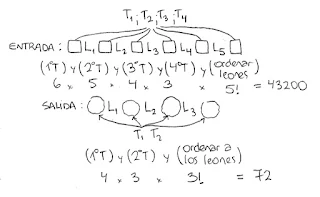 T₁, T₂, T₃, T₄
ENTRADA: □ L₁ □ L₂ □ L₃ □ L₄ □ L₅ □
(1ºT) y (2ºT) y (3ºT) y (4ºT) y (ordenar leones)
6 × 5 × 4 × 3 × 5! = 43200
SALIDA: ○ L₁ ○ L₂ ○ L₃ ○
T₁ T₂
(1ºT) y (2ºT) y (ordenar a los leones)
4 × 3 × 3! = 72